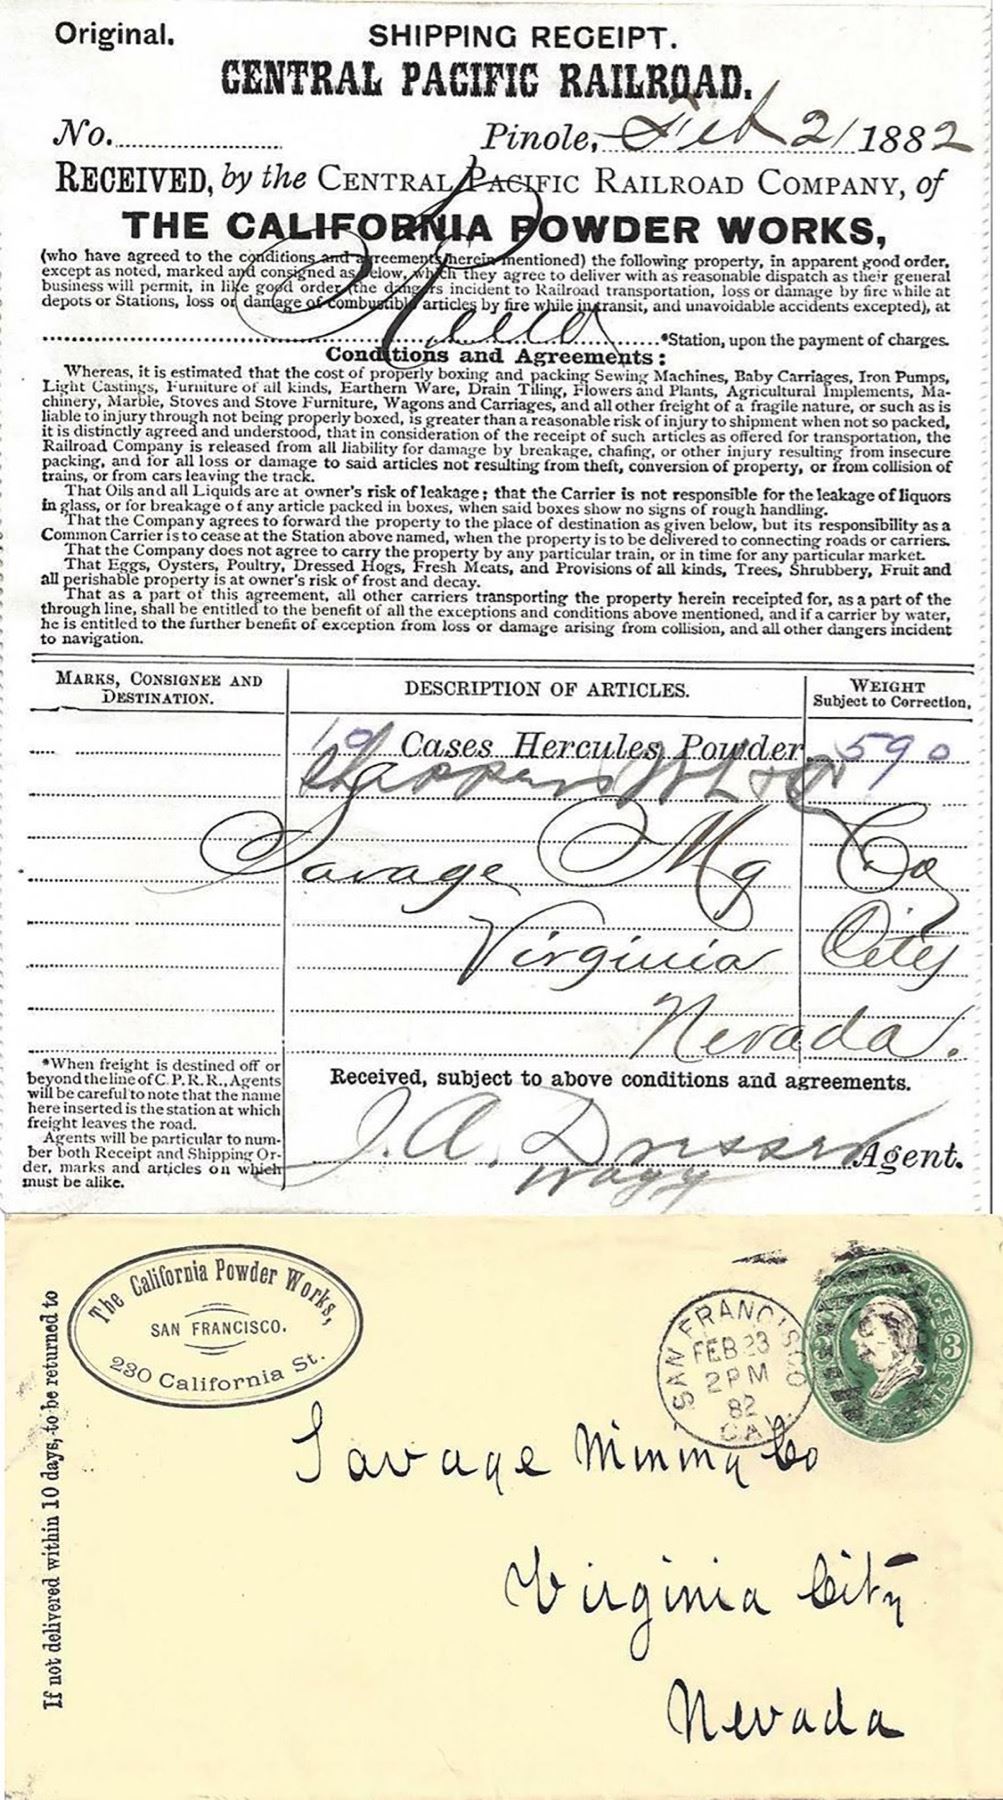 Original. SHIPPING RECEIPT.
CENTRAL PACIFIC RAILROAD.
No. Pinole, Feb 21 1882
RECEIVED, by the CENTRAL PACIFIC RAILROAD COMPANY, of
THE CALIFORNIA POWDER WORKS,
(who have agreed to the conditions and agreements herein mentioned) the following property, in apparent good order,
except as noted, marked and consigned as below, which they agree to deliver with as reasonable dispatch as their general
business will permit, in like good order (the dangers incident to Railroad transportation, loss or damage by fire while at
depots or Stations, loss or damage of combustible articles by fire while in transit, and unavoidable accidents excepted), at
Reno *Station, upon the payment of charges.
Conditions and Agreements:
Whereas, it is estimated that the cost of properly boxing and packing Sewing Machines, Baby Carriages, Iron Pumps,
Light Castings, Furniture of all kinds, Earthern Ware, Drain Tiling, Flowers and Plants, Agricultural Implements, Ma-
chinery, Marble, Stoves and Stove Furniture, Wagons and Carriages, and all other freight of a fragile nature, or such as is
liable to injury through not being properly boxed, is greater than a reasonable risk of injury to shipment when not so packed,
it is distinctly agreed and understood, that in consideration of the receipt of such articles as offered for transportation, the
Railroad Company is released from all liability for damage by breakage, chafing, or other injury resulting from insecure
packing, and for all loss or damage to said articles not resulting from theft, conversion of property, or from collision of
trains, or from cars leaving the track.
That Oils and all Liquids are at owner's risk of leakage; that the Carrier is not responsible for the leakage of liquors
in glass, or for breakage of any article packed in boxes, when said boxes show no signs of rough handling.
That the Company agrees to forward the property to the place of destination as given below, but its responsibility as a
Common Carrier is to cease at the Station above named, when the property is to be delivered to connecting roads or carriers.
That the Company does not agree to carry the property by any particular train, or in time for any particular market.
That Eggs, Oysters, Poultry, Dressed Hogs, Fresh Meats, and Provisions of all kinds, Trees, Shrubbery, Fruit and
all perishable property is at owner's risk of frost and decay.
That as a part of this agreement, all other carriers transporting the property herein receipted for, as a part of the
through line, shall be entitled to the benefit of all the exceptions and conditions above mentioned, and if a carrier by water,
he is entitled to the further benefit of exception from loss or damage arising from collision, and all other dangers incident
to navigation.
MARKS, CONSIGNEE AND DESTINATION. DESCRIPTION OF ARTICLES. WEIGHT Subject to Correction,
10 Cases Hercules Powder 590
Shippers
Savage Mg Co
Virginia City
Nevada.
*When freight is destined off or
beyond the line of C. P. R. R., Agents
will be careful to note that the name
here inserted is the station at which
freight leaves the road.
Agents will be particular to num-
ber both Receipt and Shipping Or-
der, marks and articles on which
must be alike.
Received, subject to above conditions and agreements.
J. A. Dresser Agent.
If not delivered within 10 days, to be returned to
The California Powder Works,
SAN FRANCISCO.
230 California St.
SAN FRANCISCO
FEB 23
2 PM
82
CAL.
Savage Mining Co
Virginia City
Nevada